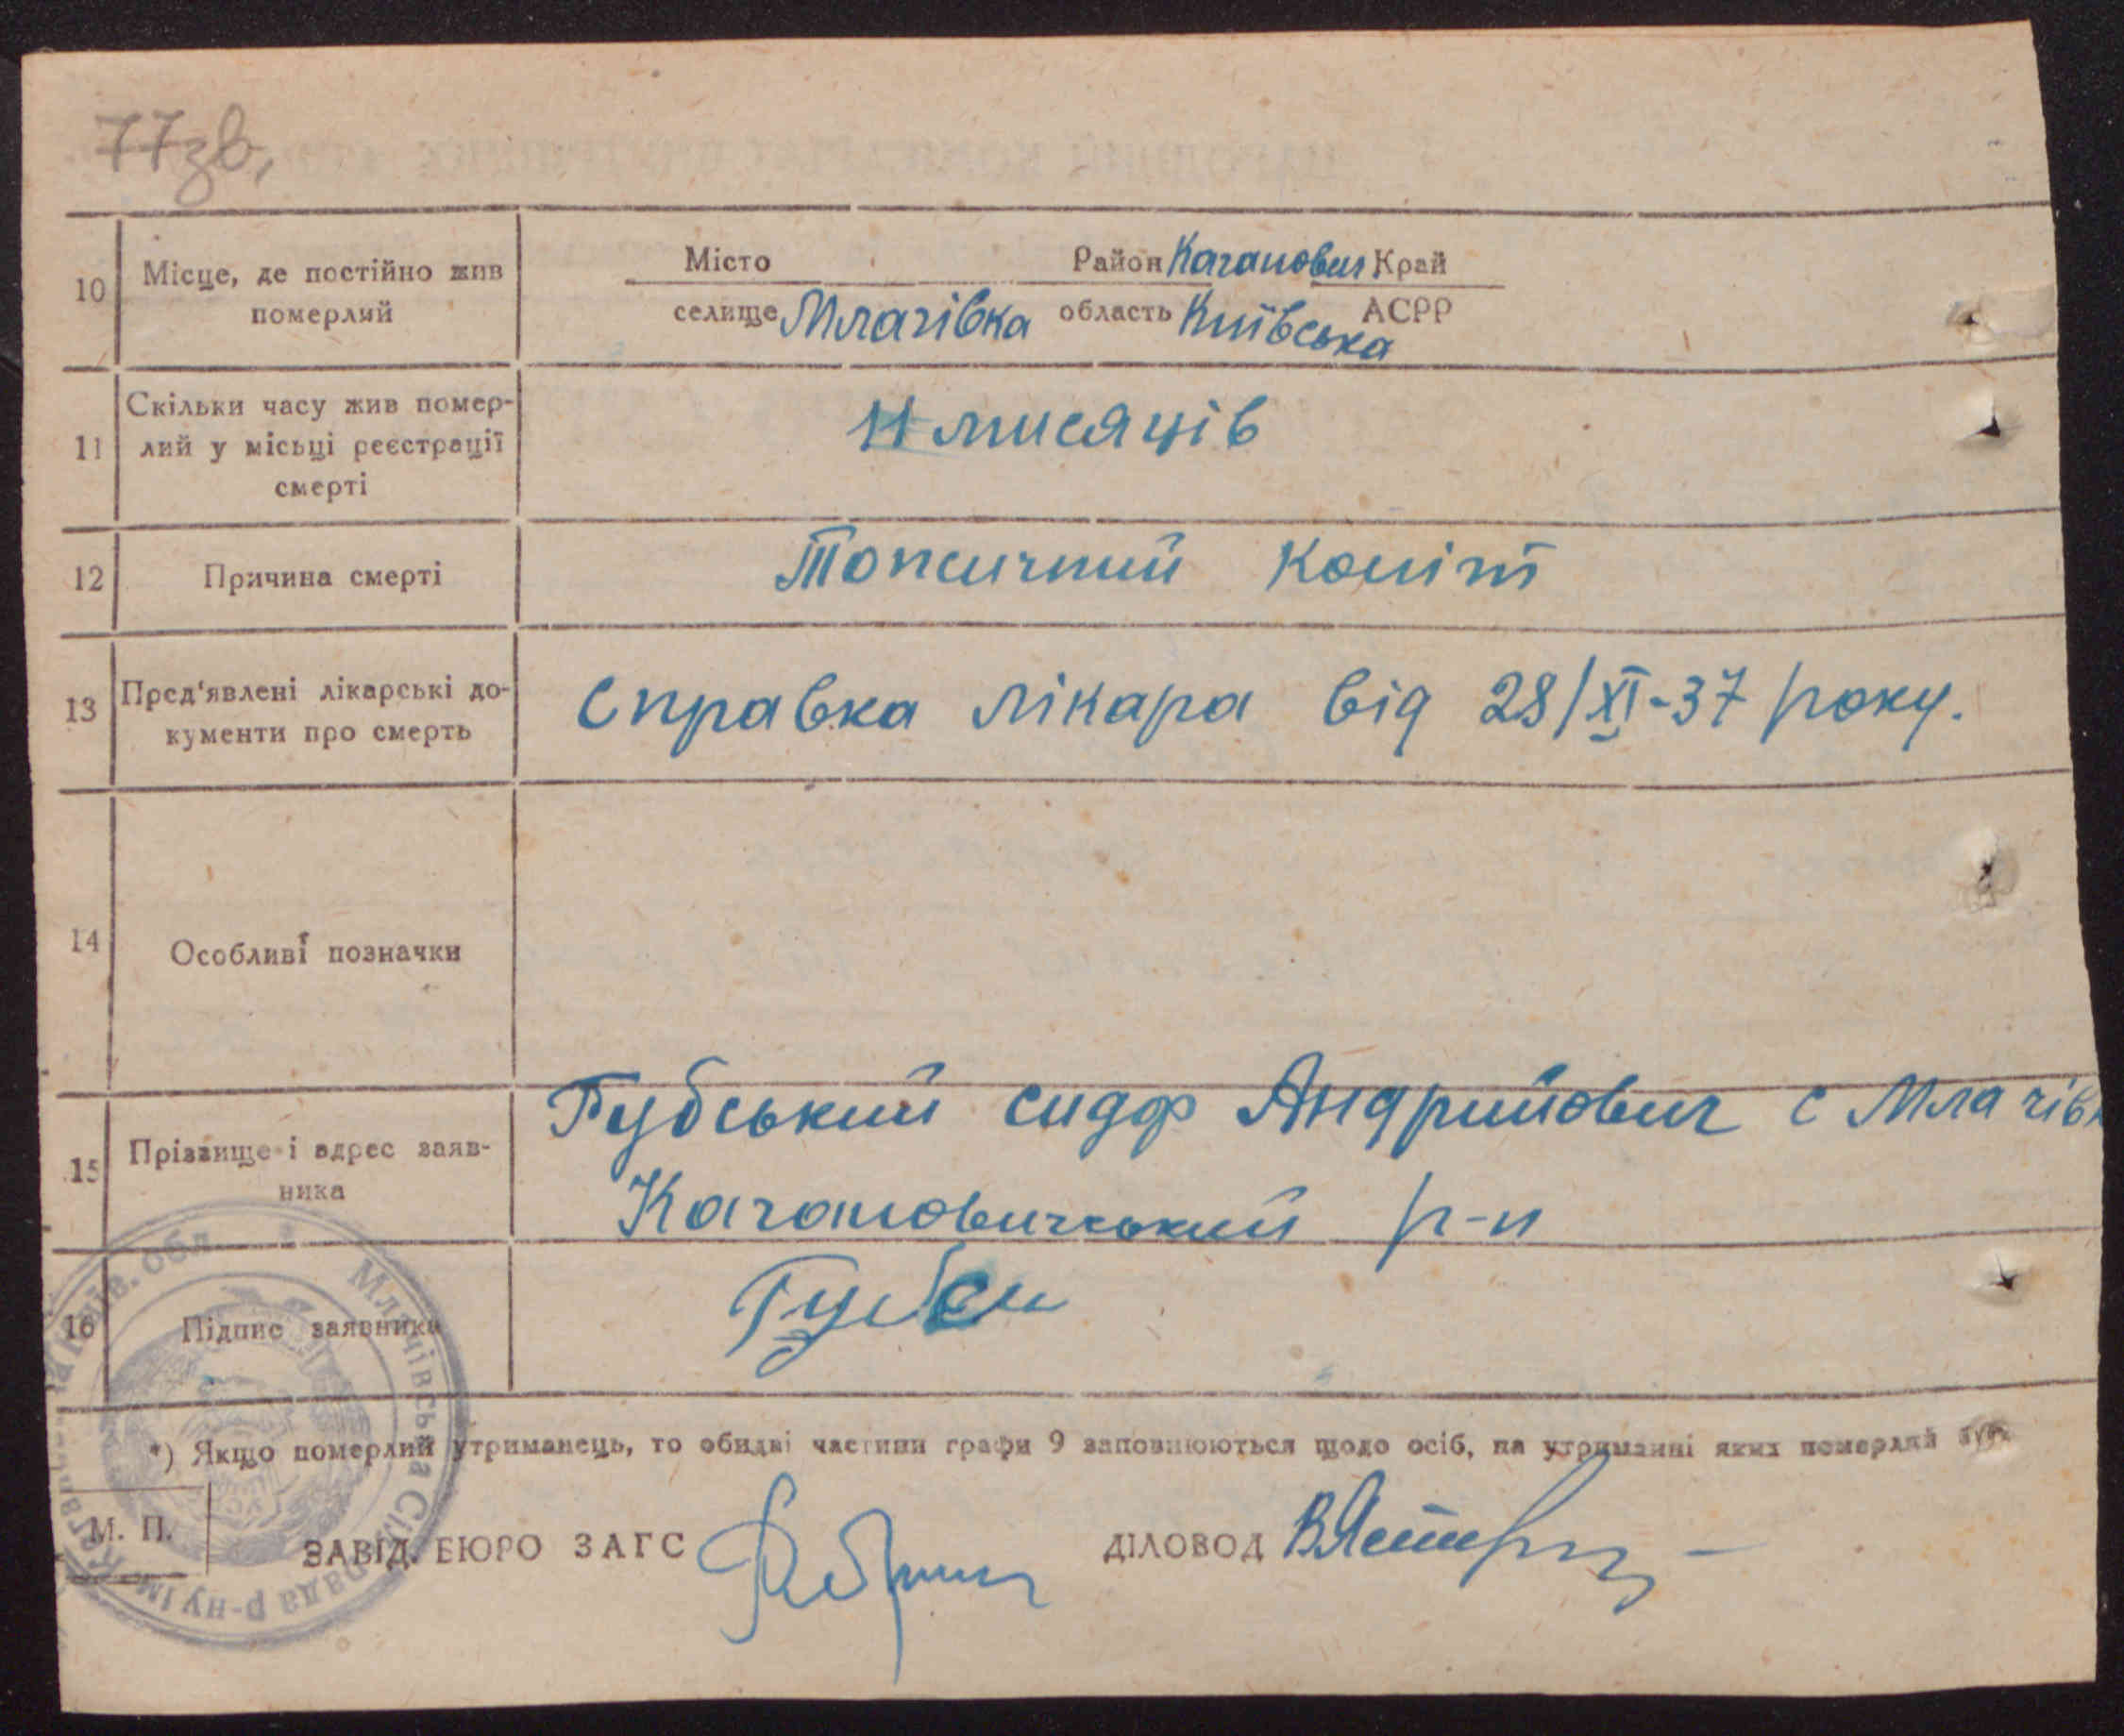 77зв,
10 Місце, де постійно жив
померлий
Місто Район Каганович Край
селище Млачівка область Київська АСРР
11 Скільки часу жив помер-
лий у місьці реєстрації
смерті
11 мисяців
12 Причина смерті
Топсичний Коліт
13 Пред'явлені лікарські до-
кументи про смерть
Справка лікара від 28/XI-37 року.
14 Особливі позначки
15 Прізвище і адрес заяв-
ника
Губський сидор Андрийович с Млачівк
Кагановичський р-н
16 Підпис заявника
Губси
*) Якщо померлий утриманець, то обидві частини графи 9 заповнюються щодо осіб, на утриманні яких померлий був
М. П.
ЗАВІД. БЮРО ЗАГС
ДІЛОВОД
Млачівська Сільрада р-ну ім. Кагановича Київ. обл